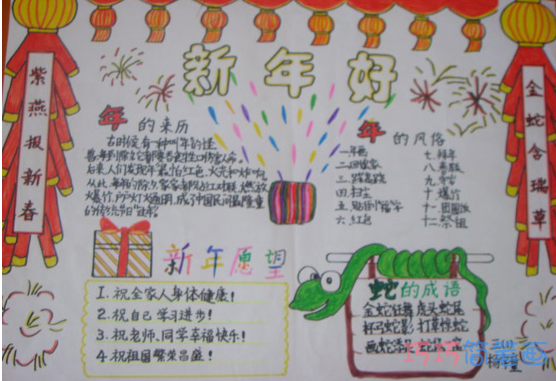 新年好
紫燕报新春
金蛇含瑞草
年的来历
古时候有一种叫年的怪
后来人们发现年最怕红色、火光和炸响
从此每年的除夕家家都贴红对联、燃放
大爆竹、户户灯火通明,成了中国民间最隆重
的传统节日"过年"
年的风俗
一.年画
二.回娘家
四.扫尘
六.红包
七.拜年
十.爆竹
十二.祭祖
新年愿望
1.祝全家人身体健康!
2.祝自己学习进步!
3.祝老师、同学幸福快乐!
4.祝祖国繁荣昌盛!
蛇的成语
金蛇狂舞 虎头蛇尾
杯弓蛇影 打草惊蛇
画蛇添足
巧巧简笔画